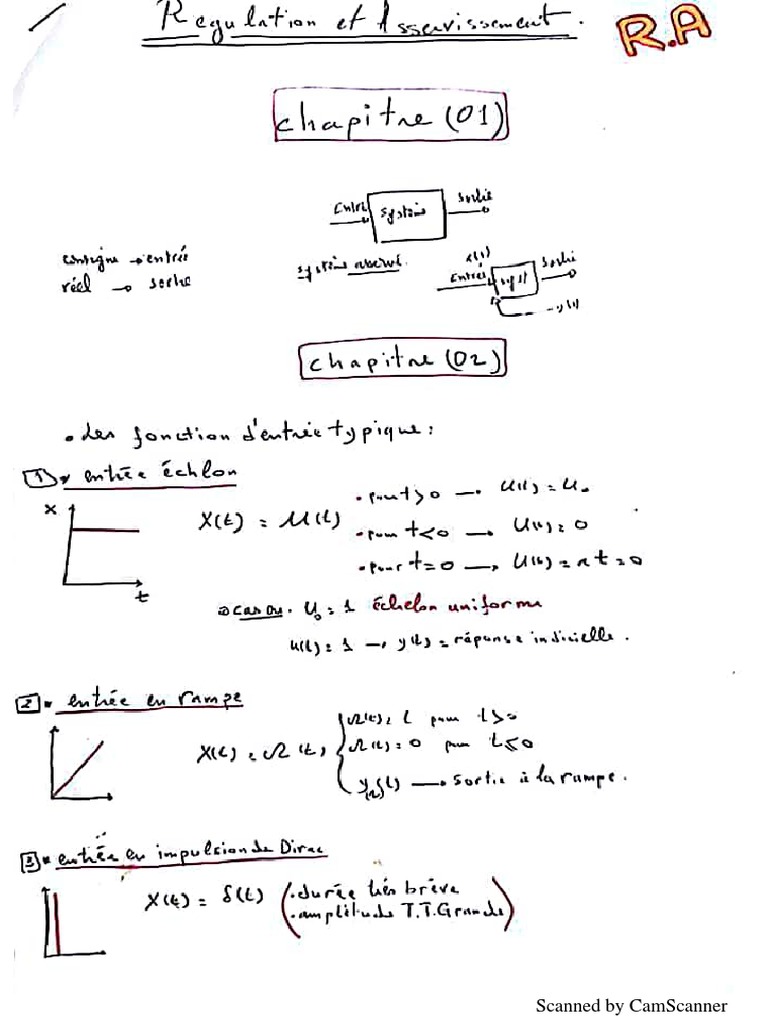 Regulation et Asservissement.
R.A
chapitre (01)
Entrée système sortie
consigne → entrée
réel → sortie
système asservi
x(t)
Entrée syst sortie
y(t)
chapitre (02)
• Les fonction d'entrée typique :
1 * entrée échlon
x
t
X(t) = U(t)
• pour t>0 → U(t) = U₀
• pour t<0 → U(t) = 0
• pour t=0 → U(t) = t=0
U₀ = 1 échelon uniforme
u(t) = 1 → y(t) = réponse indicielle.
2 * entrée en rampe
X(t) = r(t)
r(t) = t pour
r(t) = 0 pour t≤0
y(t) → sortie à la rampe.
3 * entrée en impulsion de Dirac
X(t) = δ(t) (• durée très brève
• amplitude T.T.Grande)
Scanned by CamScanner